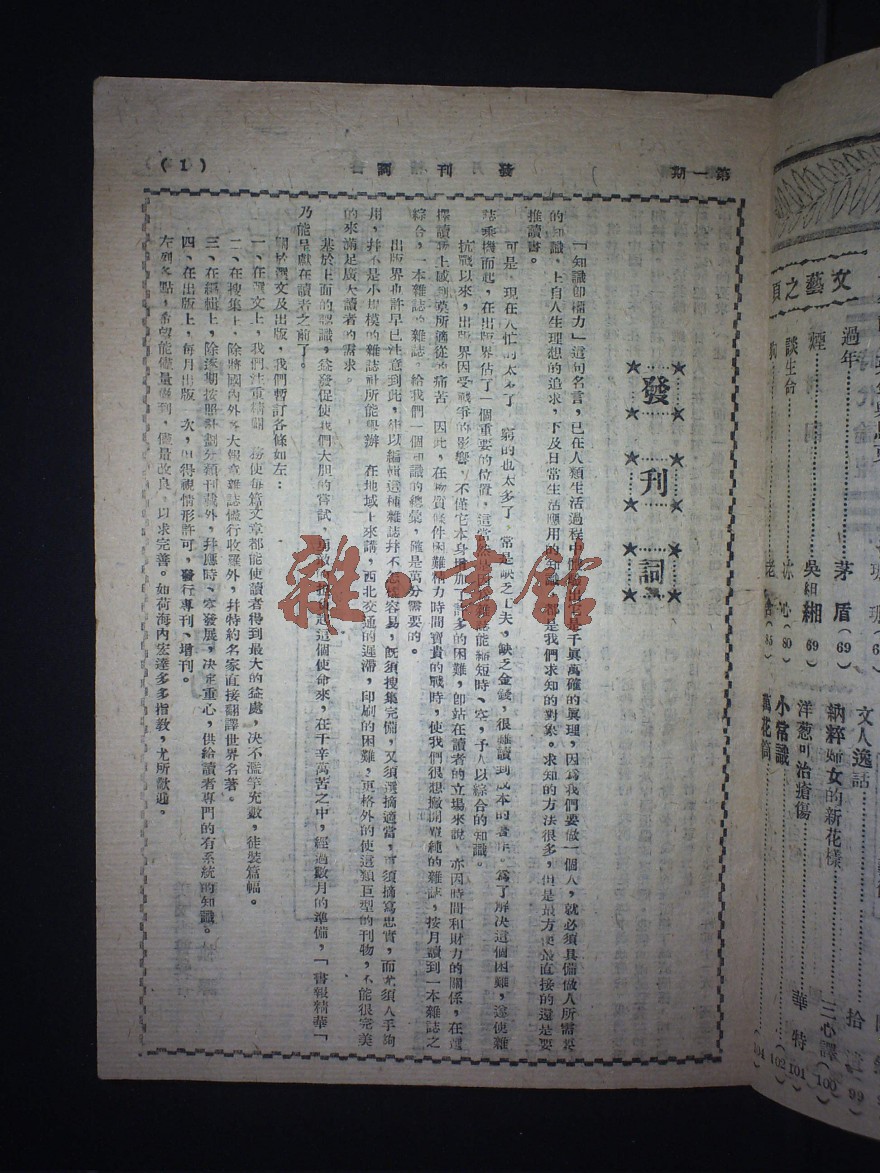 第一期
發刊詞
(1)
發刊詞
「知識即權力」這句名言，已在人類生活過程中
千真萬確的眞理，因爲我們要做一個人，就必須具備做人所需要
的知識，上自人生理想的追求，下及日常生活應用的知識，都是我們求知的對象。求知的方法很多，但是最方便最直接的還是要
推讀書。
可是，現在人忙的太多了，窮的也太多了，常是缺乏工夫，缺乏金錢，很難讀到成本的書，爲了解決這個困難，遂使雜
誌乘機而起，在出版界佔了一個重要的位置，這當然是因
能縮短時、空，予人以綜合的知識。
抗戰以來，出版界因受戰爭的影響，不僅它本身增加了許多的困難，卽站在讀者的立場來說，亦因時間和財力的關係，在選
擇讀物上感到莫所適從的痛苦，因此，在物質條件困難精力時間寶貴的戰時，使我們很想撇開單純的雜誌，按月讀到一本雜誌之
綜合，一本雜誌的雜誌，給我們一個知識的總彙，確是萬分需要的。
出版界也許早已注意到此，徒以編輯這種雜誌幷不怎樣容易，旣須搜集完備，又須選摘適當，
須摘寫忠實，而尤須人手夠
用，幷不是小規模的雜誌社所能舉辦，在地域上來講，西北交通的遲滯，印刷的困難，更格外的使這類巨型的刊物，不能很完美
的來滿足廣大讀者的需求。
基於上面的認識，益發促使我們大胆的嘗試，
這個使命來，在千辛萬苦之中，經過數月的準備，「書報精華」
乃能呈獻在讀者之前了。
關於選文及出版，我們暫訂各條如左：
一、在選文上，我們注重精闢，務使每篇文章都能使讀者得到最大的益處，决不濫竽充數，徒裝篇幅。
二、在搜集上，除將國內外各大報章雜誌儘行收羅外，幷特約名家直接翻譯世界名著。
三、在編輯上，除逐期按照計劃分類刊載外，幷應時、空發展，决定重心，供給讀者專門的有系統的知識。
四、在出版上，每月出版一次，但得視情形許可，發行專刊、增刊。
左列各點，希望能儘量做到，儘量改良，以求完善。如荷海內宏達多多指敎，尤所歡迎。
雜·書館
文藝之頁
過年……茅盾(69)
煙……吳組緗(69)
談生命……冰心(80)
文人逸話……拾(99)
納粹婦女的新花樣……三心譯(100)
洋葱可治瘡傷……華特(101)
小常識……(102)
萬花筒